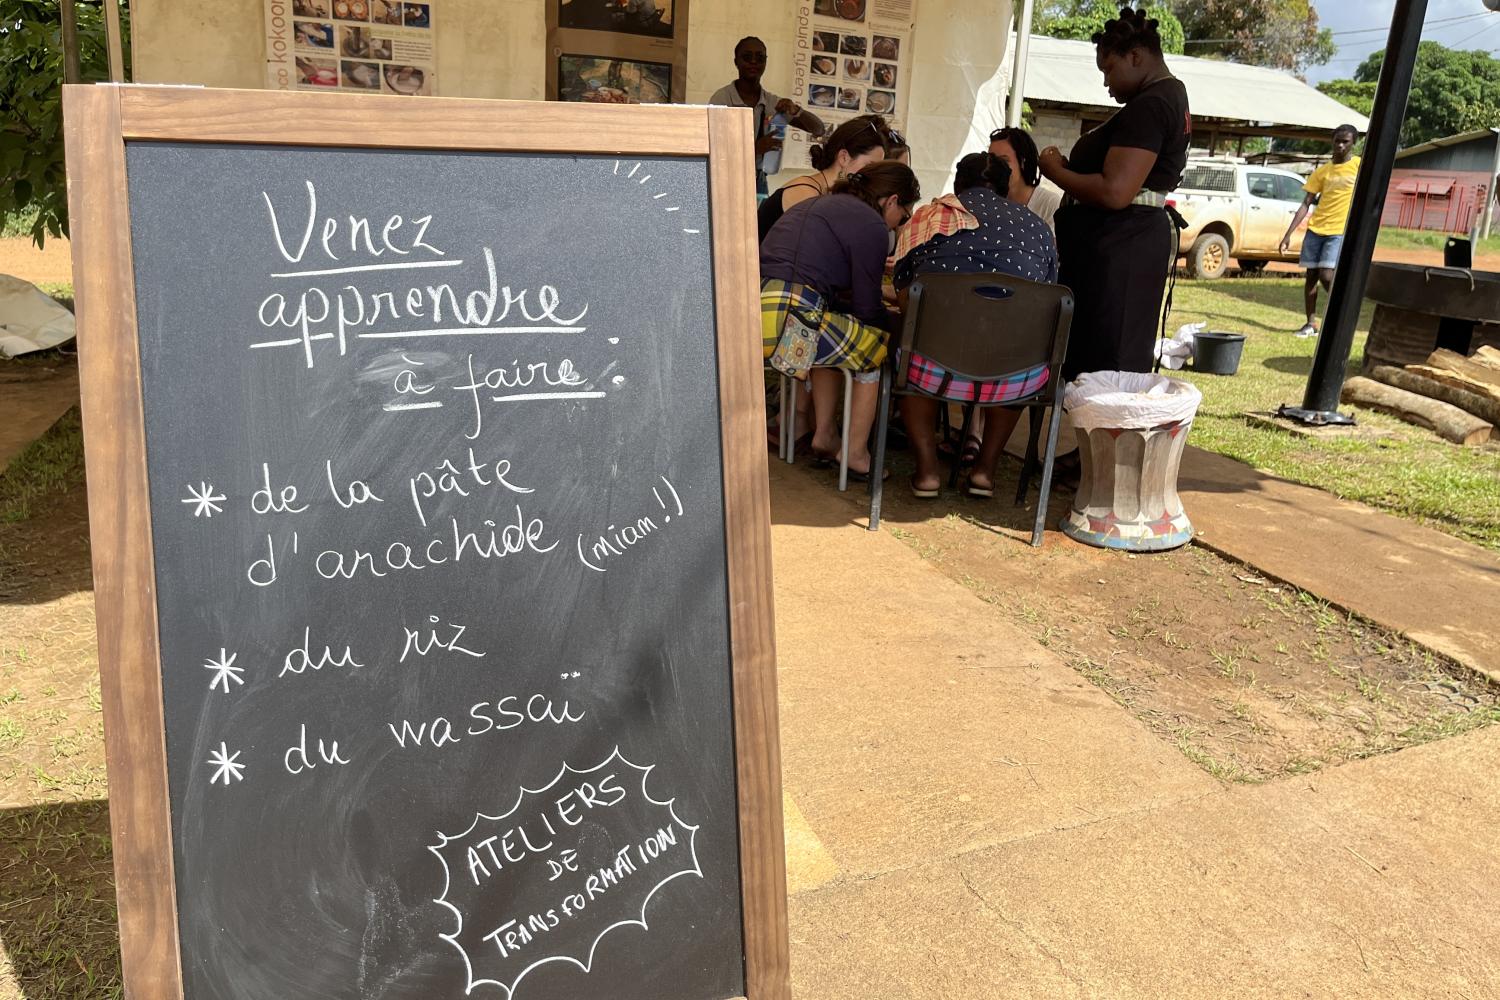 kokoon
baafu pinda
Venez
apprendre
à faire :
* de la pâte
d'arachide (miam !)
* du riz
* du wassaï
ATELIERS
DE
TRANSFORMATION